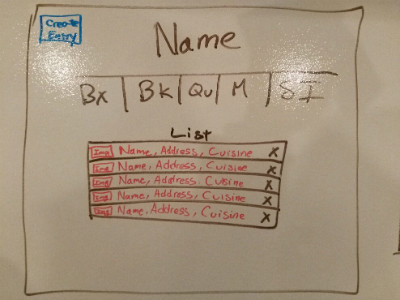 Create
Entry
Name
Bx | BK | Qu | M | SI
List
Img Name, Address, Cuisine X
Img Name, Address, Cuisine X
Img Name, Address, Cuisine X
Img Name, Address, Cuisine X
Img Name, Address, Cuisine X